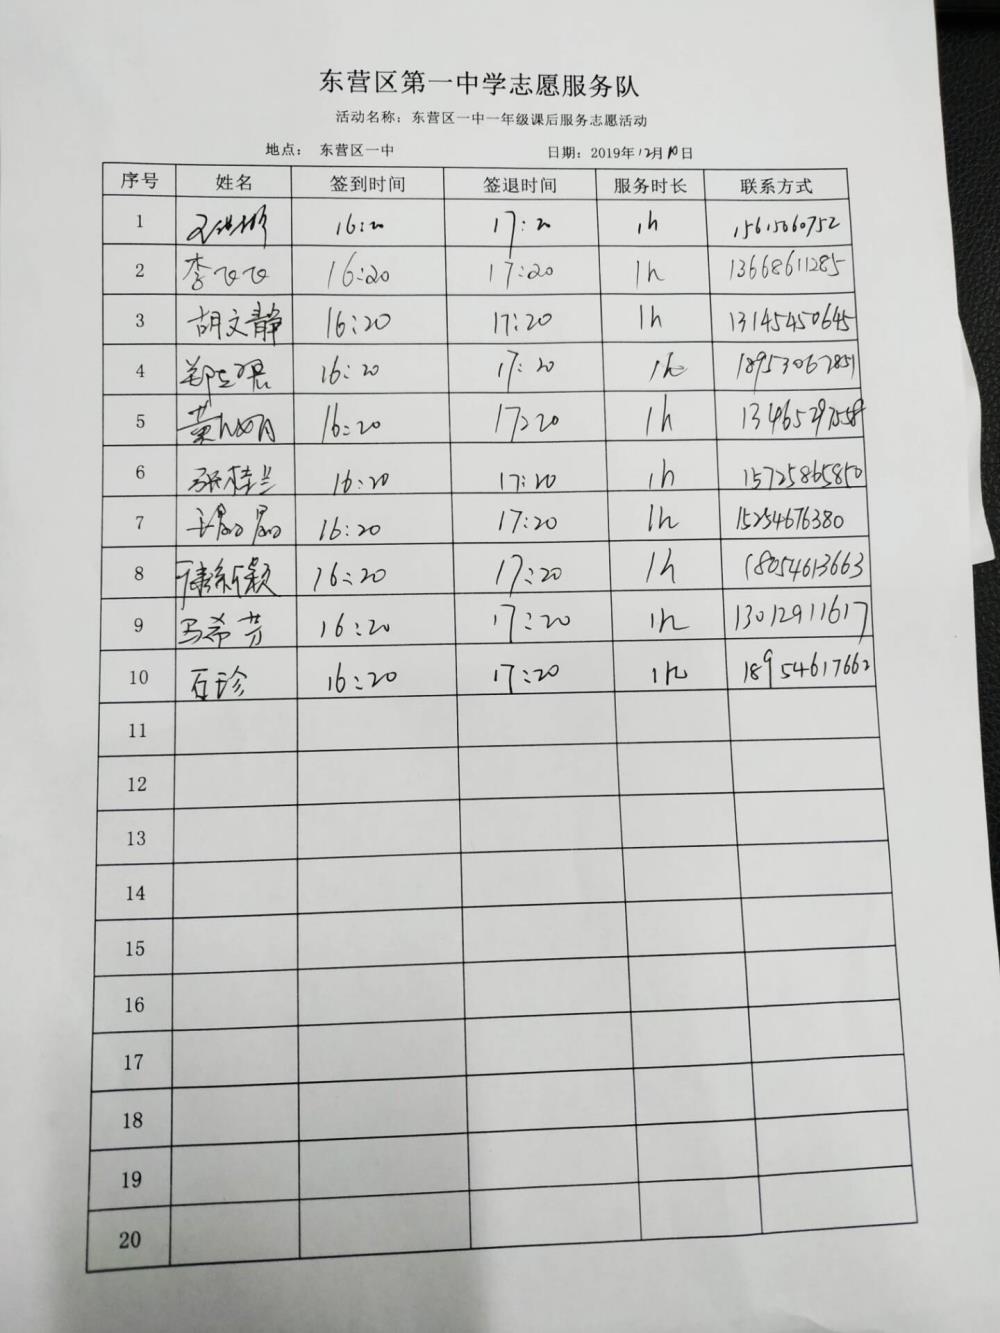 东营区第一中学志愿服务队
活动名称：东营区一中一年级课后服务志愿活动
地点： 东营区一中 日期：2019年12月10日
序号 姓名 签到时间 签退时间 服务时长 联系方式
1 16:20 17:20 1h 15615060752
2 李飞飞 16:20 17:20 1h 13668611285
3 胡文静 16:20 17:20 1h 13145450645
4 16:20 17:20 1h 18953067851
5 16:20 17:20 1h
6 张桂兰 16:20 17:20 1h 15725865850
7 王晶晶 16:20 17:20 1h 15254676380
8 16:20 17:20 1h 18054613663
9 马希芳 16:20 17:20 1h 13012911617
10 石珍 16:20 17:20 1h 18954617662
11
12
13
14
15
16
17
18
19
20